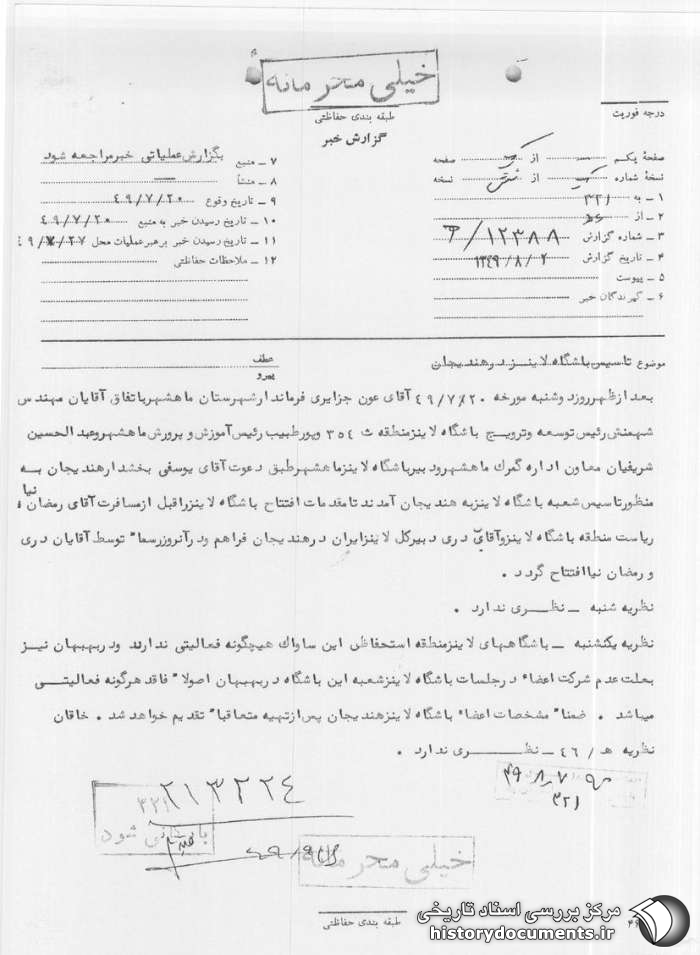 خیلی محرمانه
طبقه بندی حفاظتی
گزارش خبر
درجه فوریت
صفحهٔ یکم از صفحه
نسخهٔ شماره یک از شش نسخه
۱ ـ به ۳۲۱
۲ ـ از ۵ه‍
۳ ـ شماره گزارش ۱۲۳۸۸/
۴ ـ تاریخ گزارش ۱۳۴۹/۸/۲
۵ ـ پیوست
۶ ـ گیرندگان خبر
۷ ـ منبع بگزارش عملیاتی خبر مراجعه شود
۸ ـ منشأ
۹ ـ تاریخ وقوع ۴۹/۷/۲۰
۱۰ ـ تاریخ رسیدن خبر به منبع ۴۹/۷/۲۰
۱۱ ـ تاریخ رسیدن خبر برهبر عملیات محل ۴۹/۷/۲۷
۱۲ ـ ملاحظات حفاظتی
موضوع تاسیس باشگاه لاینز در هندیجان
عطف
پیرو
بعد از ظهر روز دوشنبه مورخه ۴۹/۷/۲۰ آقای عون جزایری فرماندار شهرستان ماهشهر باتفاق آقایان مهندس
شهنش رئیس توسعه وترویج باشگاه لاینز منطقه ث ۳۵۴ وپور طبیب رئیس آموزش و پرورش ماهشهر وعبدالحسین
شریفیان معاون اداره گمرک ماهشهر ودبیر باشگاه لاینز ماهشهر طبق دعوت آقای یوسفی بخشدار هندیجان به
منظور تاسیس شعبه باشگاه لاینز به هندیجان آمدند تا مقدمات افتتاح باشگاه لاینز را قبل از مسافرت آقای رمضان نیا
ریاست منطقه باشگاه لاینز وآقای دری دبیر کل لاینز ایران در هندیجان فراهم ودر آنروز رسما" توسط آقایان دری
و رمضان نیا افتتاح گردد .
نظریه شنبه ـ نظری ندارد .
نظریه یکشنبه ـ باشگاههای لاینز منطقه استحفاظی این ساواک هیچگونه فعالیتی ندارند ودر بهبهان نیز
بعلت عدم شرکت اعضاء در جلسات باشگاه لاینز شعبه این باشگاه در بهبهان اصولا" فاقد هرگونه فعالیتی
میباشد . ضمنا" مشخصات اعضاء باشگاه لاینز هندیجان پس از تهیه متعاقبا" تقدیم خواهد شد . خاقان
نظریه ه‍ / ۴۶ ـ نظری ندارد .
۴۹٫۸٫۷
۳۲۱
۲۱۳۲۲۴
۳۲۱
بایگانی شود
خیلی محرمانه
طبقه بندی حفاظتی
مرکز بررسی اسناد تاریخی
historydocuments.ir